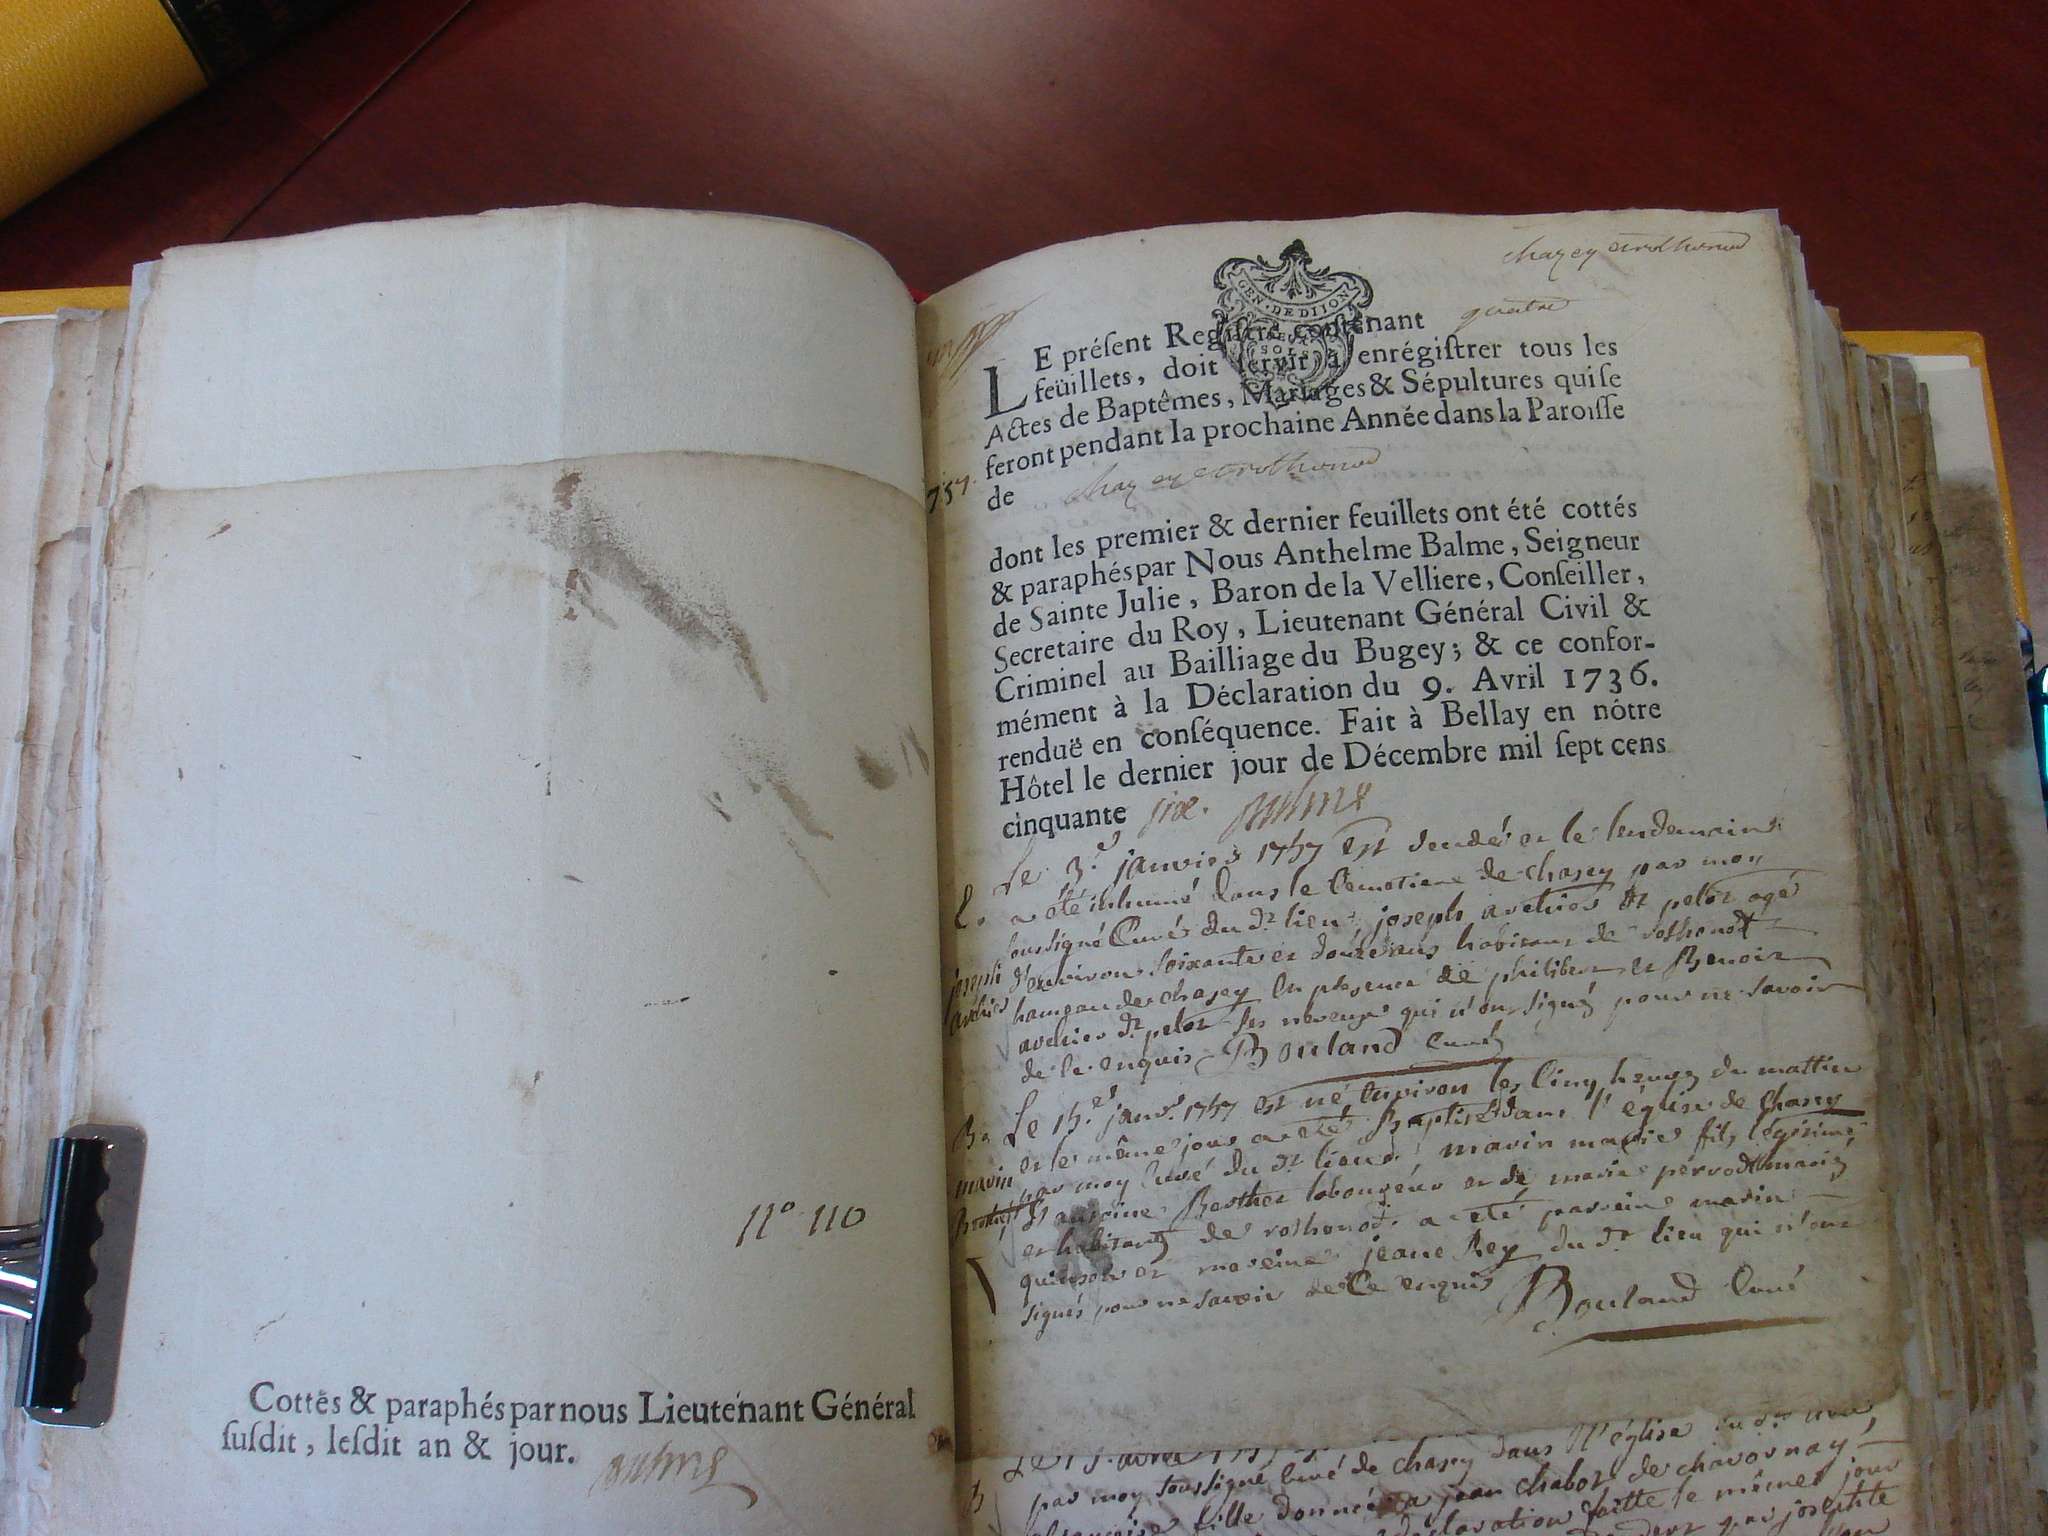 N° 110
Cottés & paraphés par nous Lieutenant Général
ſuſdit, leſdit an & jour.
Balme
chazey et rothonod
GEN. DE DIJON
SOLS
LE préſent Regiſtre contenant quatre
feüillets, doit ſervir à enrégiſtrer tous les
Actes de Baptêmes, Mariages & Sépultures qui ſe
feront pendant la prochaine Année dans la Paroiſſe
de chazey et rothonod
757.
dont les premier & dernier feuillets ont été cottés
& paraphés par Nous Anthelme Balme, Seigneur
de Sainte Julie, Baron de la Velliere, Conſeiller,
Secretaire du Roy, Lieutenant Général Civil &
Criminel au Bailliage du Bugey; & ce confor-
mément à la Déclaration du 9. Avril 1736.
renduë en conſéquence. Fait à Bellay en nôtre
Hôtel le dernier jour de Décembre mil ſept cens
cinquante six. Balme
Le 3.e janvier 1757 est decedé et le lendemain
a été inhumé dans le Cemetiere de chasey par moy
soussigné Curé du dt lieu, joseph avelier dt pelot agé
joseph
d'environ soixante et douze ans habitant de rothonod
hameau de chasey en presence de philibert et Benoit
avelier dt pelot ses neveux qui n'ont signé pour ne savoir
de ce enquis Bouland Curé
Le 15.e janv.r 1757 est né environ les Cinq heures du mattin
et le même jour a été Baptisé dans l'église de chasey
par moy Curé du dt lieu marin fils légitime
marin
d'antoine Berthet laboureur et de marie mariés
et habitants de rothonod. a été parrein marin
et mareine jeane Rey du dt lieu qui n'ont
signés pour ne savoir de Ce enquis Bouland Curé
B
par moy soussigné Curé de chasey dans l'église du dt lieu
fille donnée a jean chabot de chavornay
déclaration faitte le même jour
par